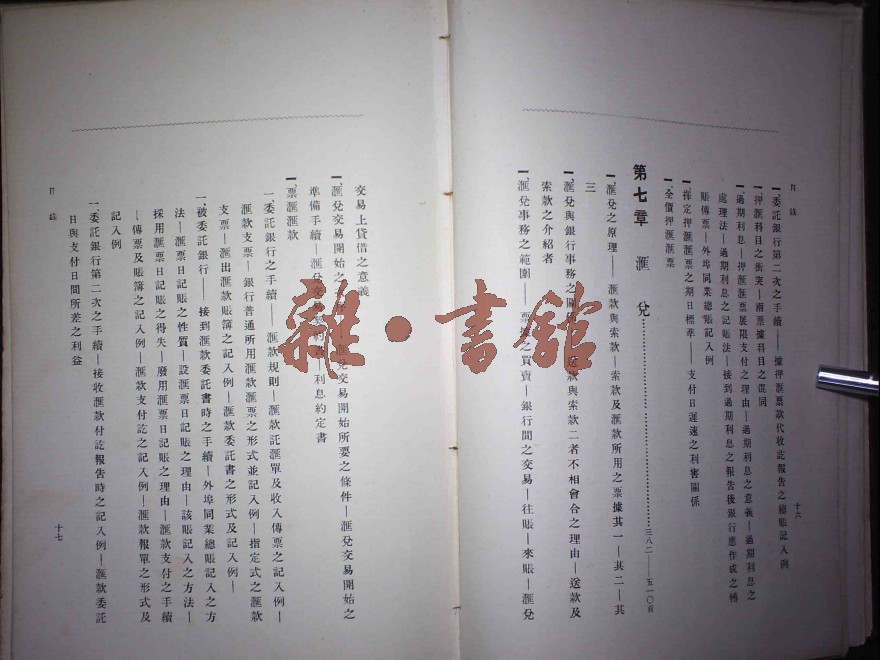 目錄
十六
一、委託銀行第二次之手續—據押匯票款代收訖報告之總賬記入例
一、押匯科目之衝突—兩票據科目之混同
一、過期利息—押匯匯票展限支付之理由—過期利息之意義—過期利息之
處理法—過期利息之記賬法—接到過期利息之報告後銀行應作成之轉
賬傳票—外埠同業總賬記入例
一、擇定押匯匯票之期日標準—支付日遲速之利害關係
一、全價押匯匯票
第七章 匯兌……三八二—五一〇頁
一、匯兌之原理—匯款與索款—索款及匯款所用之票據其一—其二—其
三
一、匯兌與銀行事務之關係—送款與索款二者不相會合之理由—送款及
索款之介紹者
一、匯兌事務之範圍—票據之買賣—銀行間之交易—往賬—來賬—匯兌
交易上貸借之意義
一、匯兌交易開始之—匯兌交易開始所要之條件—匯兌交易開始之
準備手續—匯兌交易契約書—利息約定書
一、票匯匯款
一、委託銀行之手續—匯款規則—匯款託匯單及收入傳票之記入例—
匯款支票—銀行普通所用匯款匯票之形式並記入例—指定式之匯款
支票—匯出匯款賬簿之記入例—匯款委託書之形式及記入例—
一、被委託銀行—接到匯款委託書時之手續—外埠同業總賬記入之方
法—匯票日記賬之性質—設匯票日記賬之理由—該賬記入之方法—
採用匯票日記賬之得失—廢用匯票日記賬之理由—匯款支付之手續
—傳票及賬簿之記入例—匯款支付訖之記入例—匯款報單之形式及
記入例
一、委託銀行第二次之手續—接收匯款付訖報告時之記入例—匯款委託
日與支付日間所差之利益
目錄
十七
雜·書館